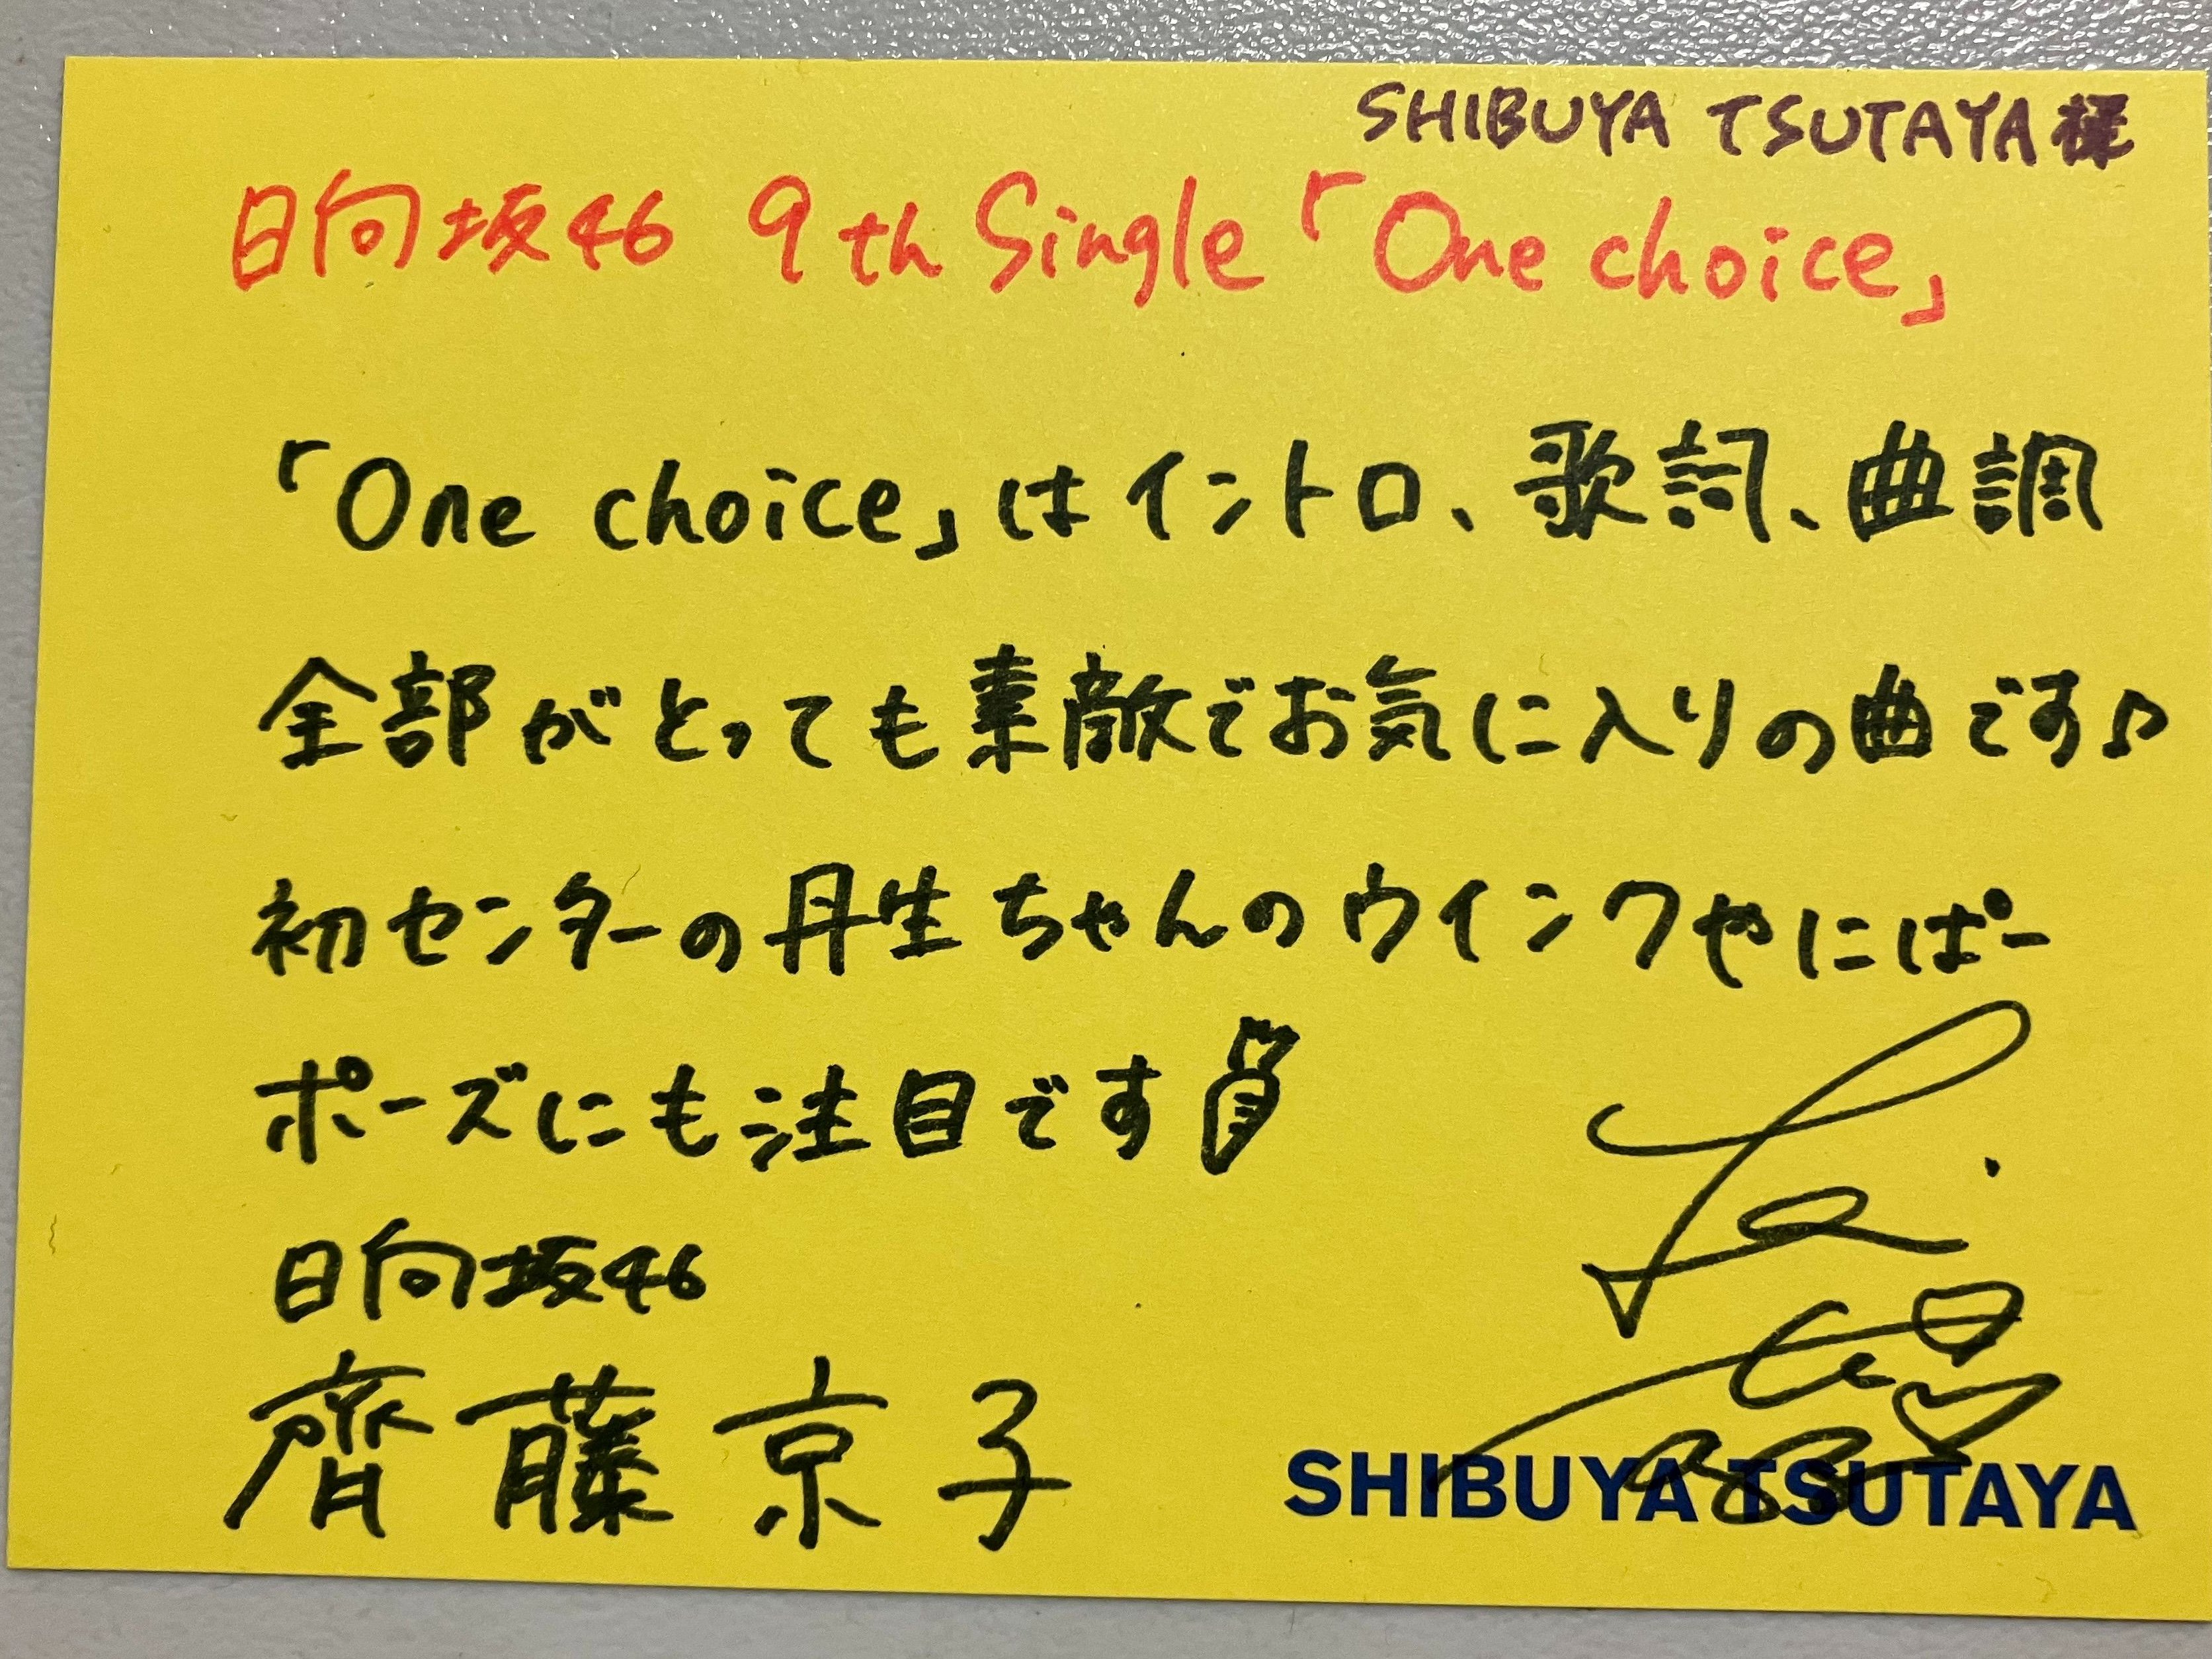 SHIBUYA TSUTAYA様
日向坂46 9th Single「One choice」
「One choice」はイントロ、歌詞、曲調
全部がとっても素敵でお気に入りの曲です♪
初センターの丹生ちゃんのウインクやにぱー
ポーズにも注目です
日向坂46
齊藤京子
SHIBUYA TSUTAYA